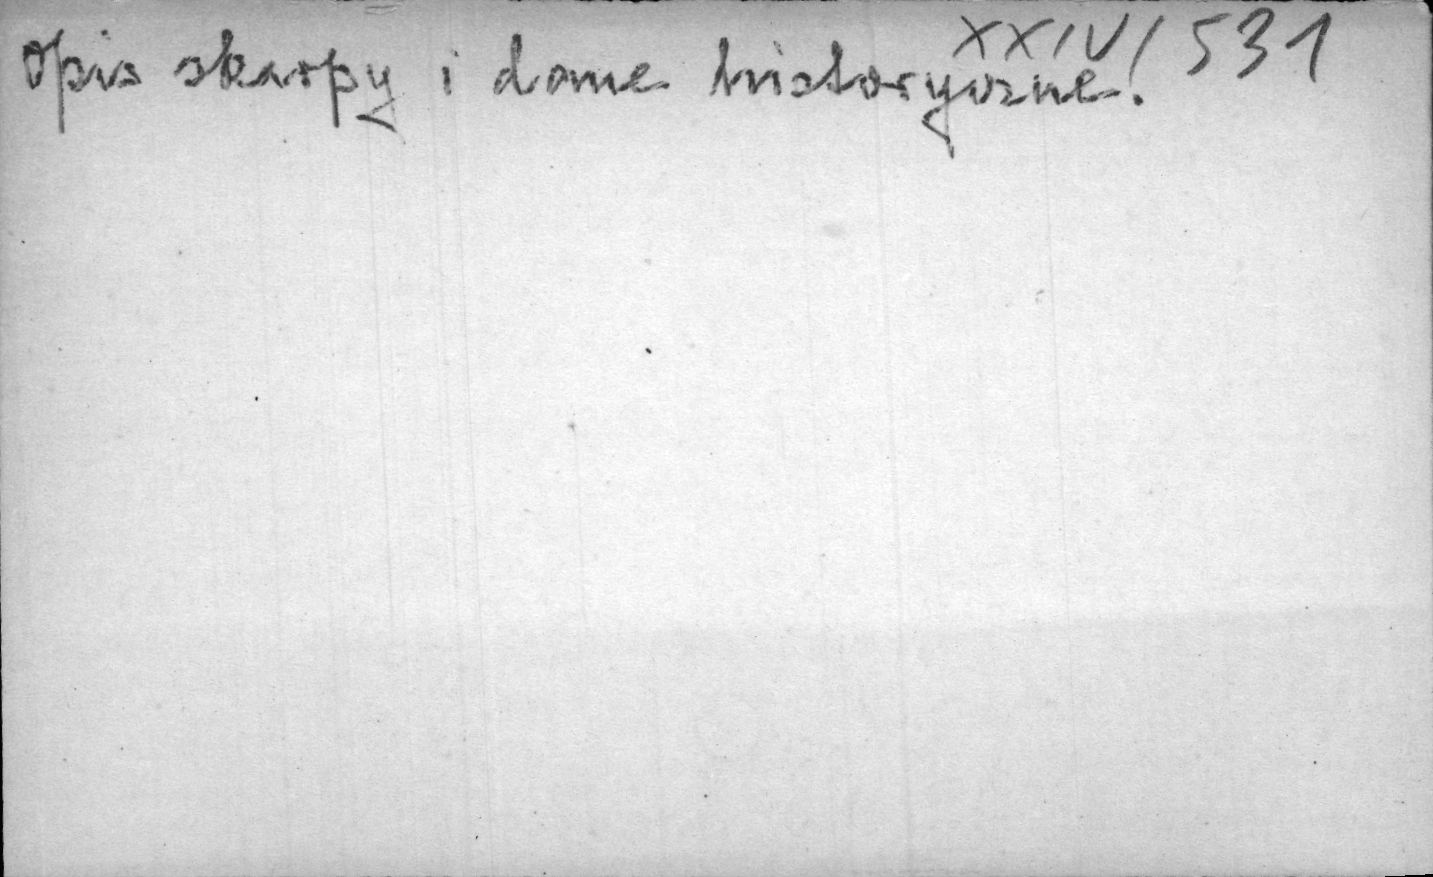 XXIV/531
Opis skarpy i dane historyczne.